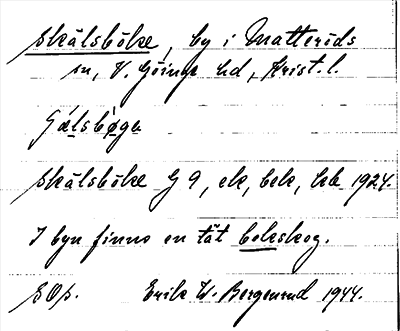 Skälsböke, by i Matteröds
sn, V. Göinge hd, Krist. l.
Skälsböke G 9, ek, bek, kb 1924.
I byn finns en tät bokskog.
SOs. Erik W. Bergenrud 1944.